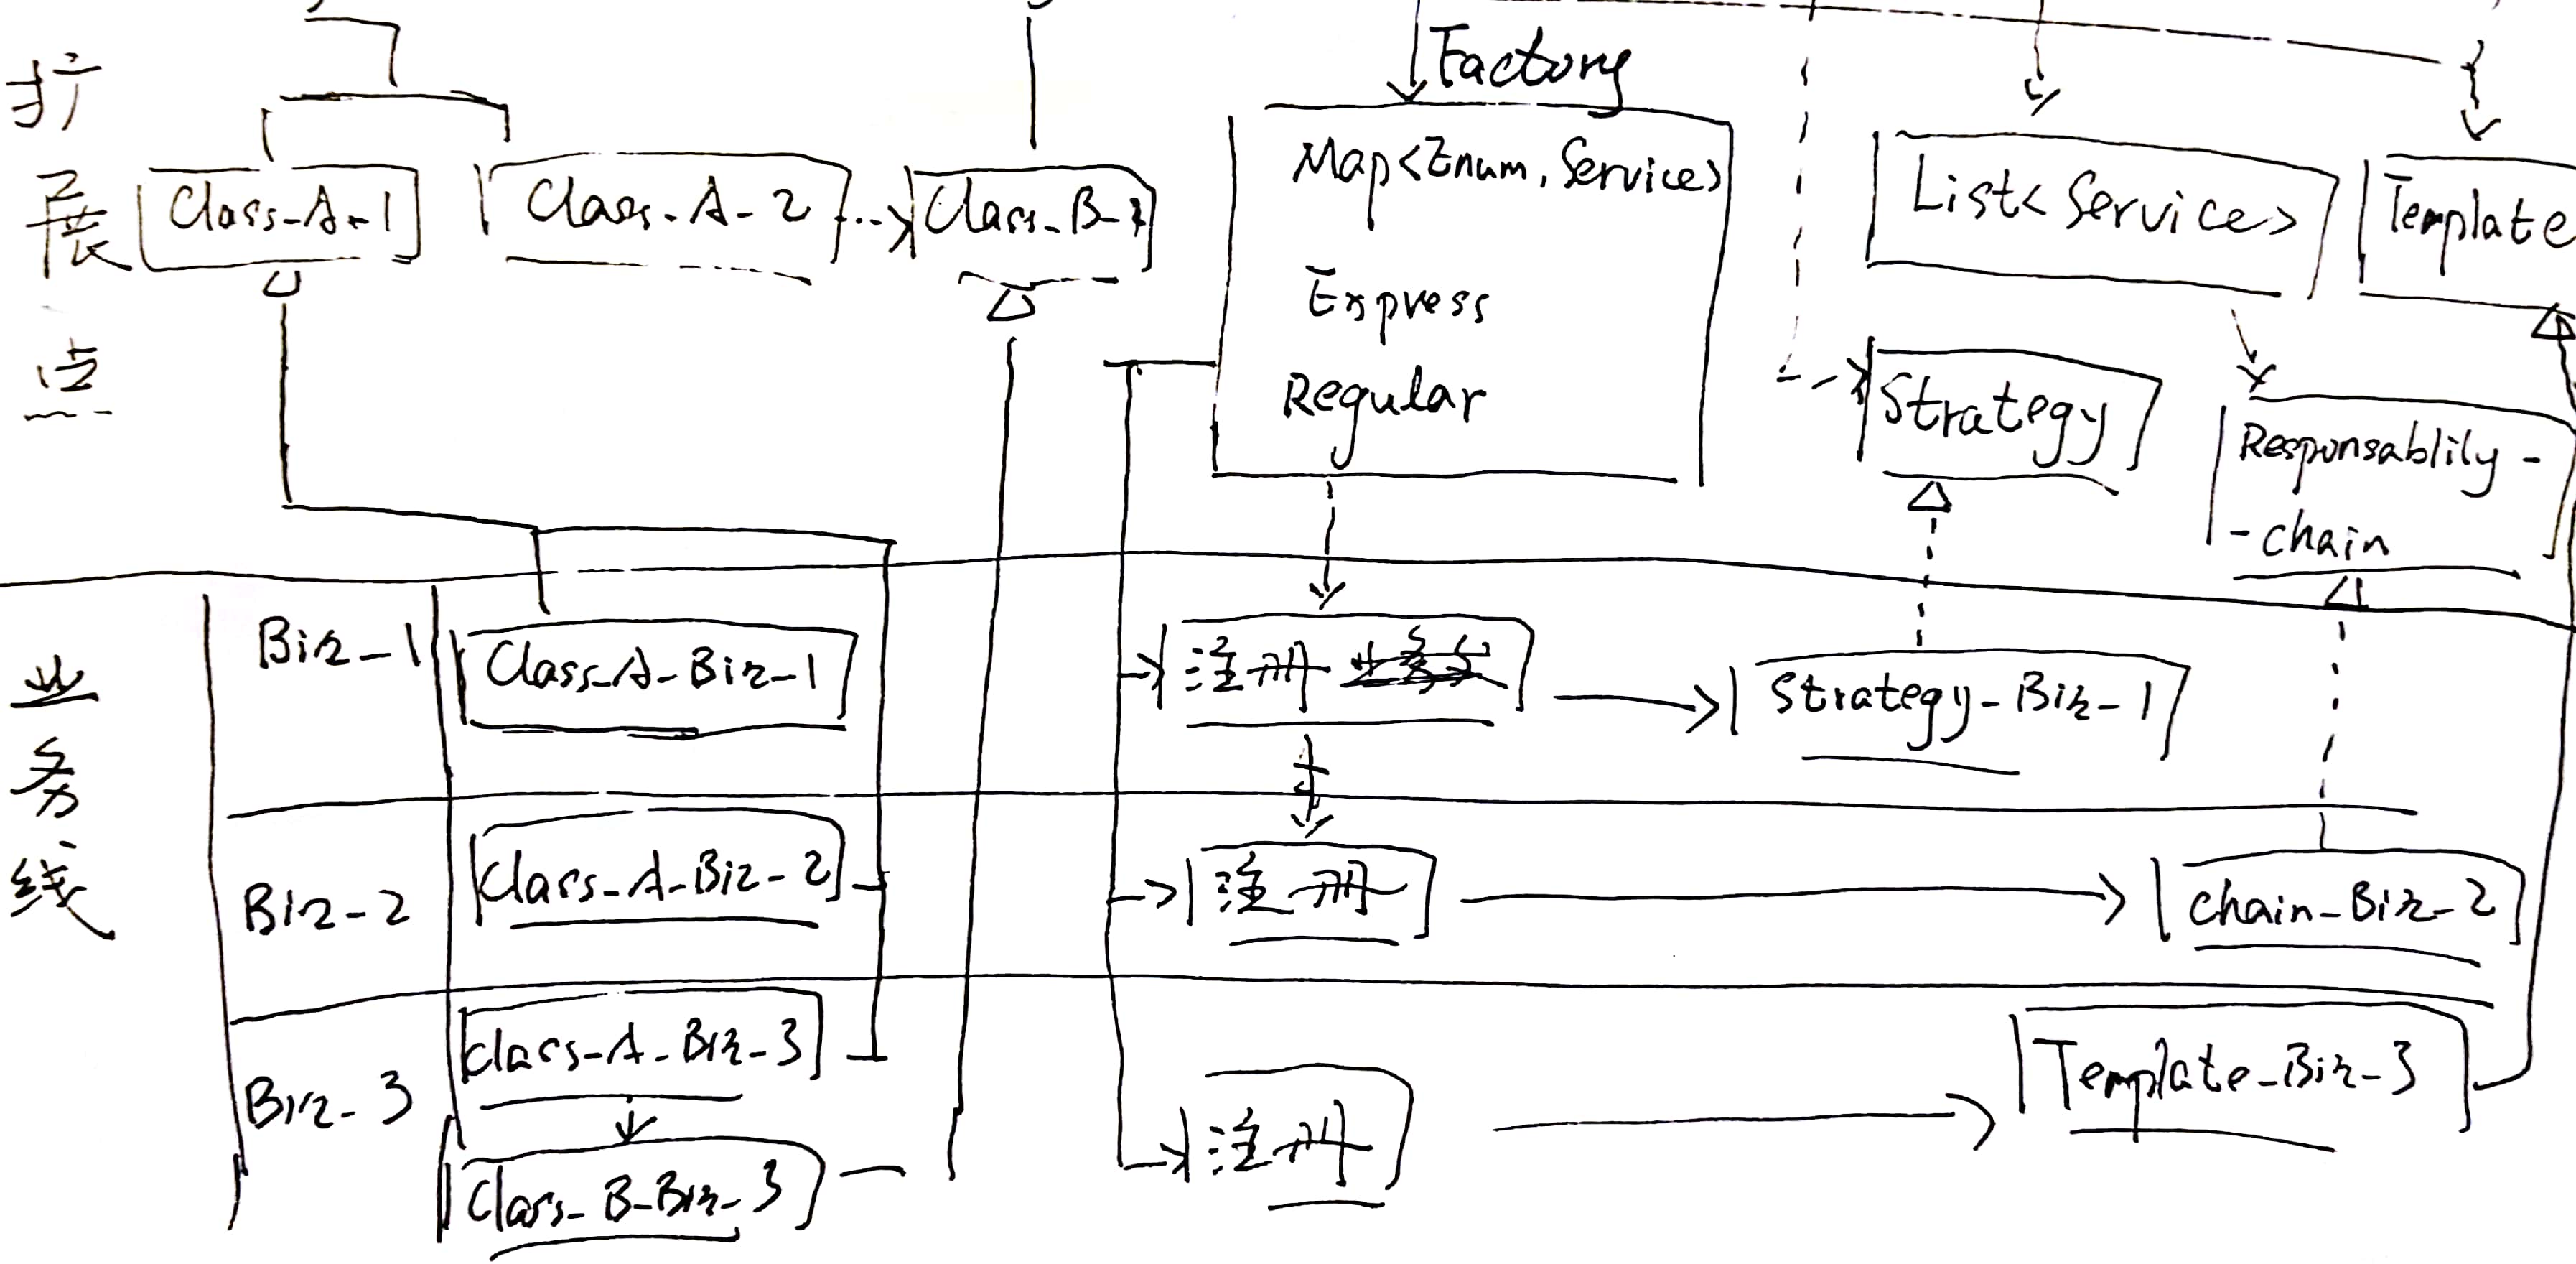 扩展点
Factory
Class-A-1
Class-A-2
Class-B-1
Map<Enum, Service>
Express
Regular
List< Service>
Template
Strategy
Responsablily-
-chain
业务线
Biz-1
Class-A-Biz-1
注册
Strategy-Biz-1
Biz-2
Class-A-Biz-2
注册
chain-Biz-2
Biz-3
Class-A-Biz-3
Class-B-Biz-3
注册
Template-Biz-3